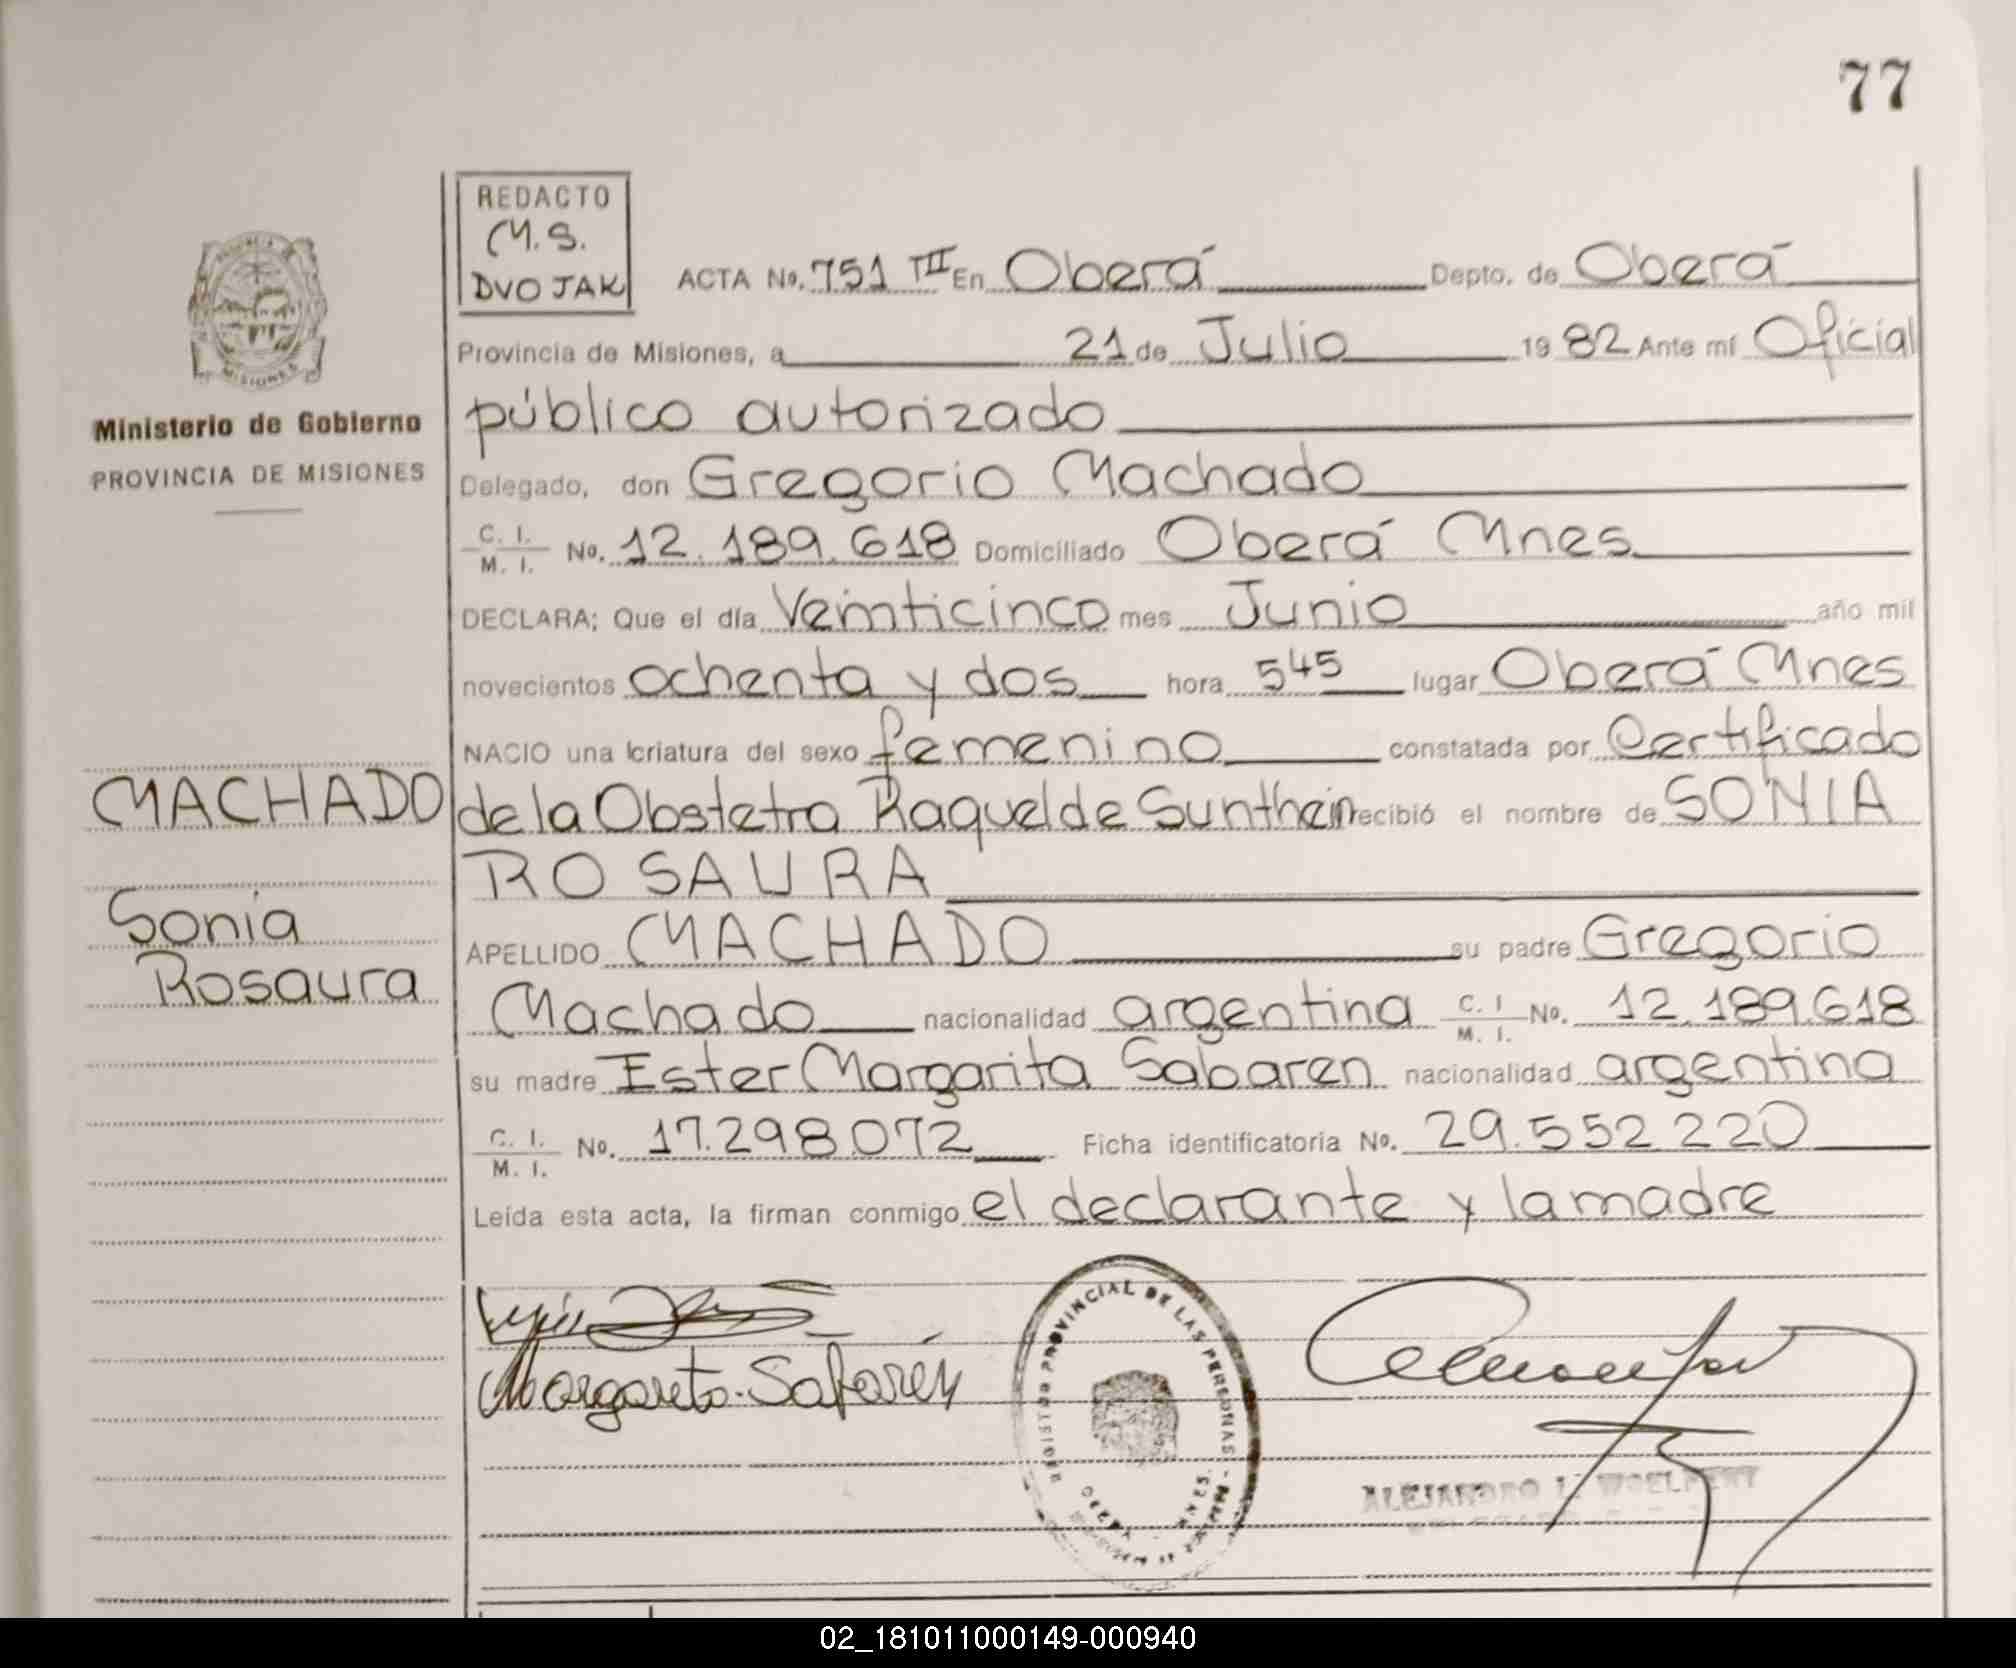 77
REDACTO
M.S.
DVOJAK
ACTA No. 751 TII En Oberá Depto. de Oberá
Provincia de Misiones, a 21 de Julio 19 82 Ante mí Oficial
público autorizado
Ministerio de Gobierno
PROVINCIA DE MISIONES
Delegado, don Gregorio Machado
C. I. / M. I. No. 12.189.618 Domiciliado Oberá Mnes
DECLARA; Que el día Veinticinco mes Junio año mil
novecientos ochenta y dos hora 5 45 lugar Oberá Mnes
NACIO una criatura del sexo femenino constatada por Certificado
MACHADO
de la Obstetra Raquel de Sunthein recibió el nombre de SONIA
ROSAURA
Sonia
Rosaura
APELLIDO MACHADO su padre Gregorio
Machado nacionalidad argentina C. I / M. I. No. 12.189.618
su madre Ester Margarita Sabaren nacionalidad argentina
C. I. / M. I. No. 17.298.072 Ficha identificatoria No. 29.552.220
Leída esta acta, la firman conmigo el declarante y la madre
Margareta Sabarén
PROVINCIAL DE LAS PERSONAS
MISIONES
ALEJANDRO
02_181011000149-000940